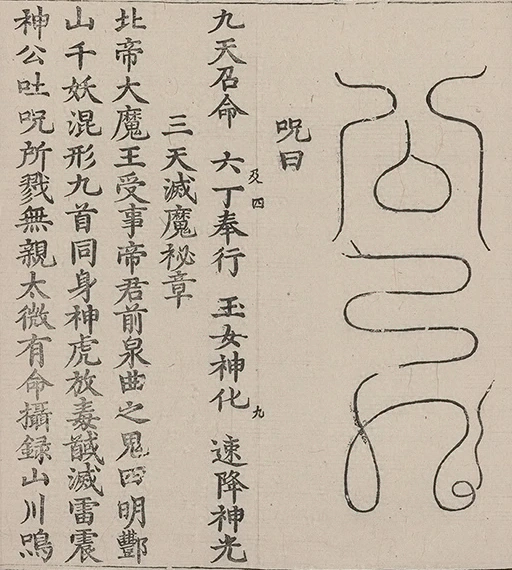 呪曰
四
九
九天召命　六丁奉行　玉女神化　速降神光
三天滅魔祕章
北帝大魔王受事帝君前泉曲之鬼四明酆
山千妖混形九首同身神虎放毒馘滅雷震
神公吐呪所戮無親太微有命攝録山川鳴